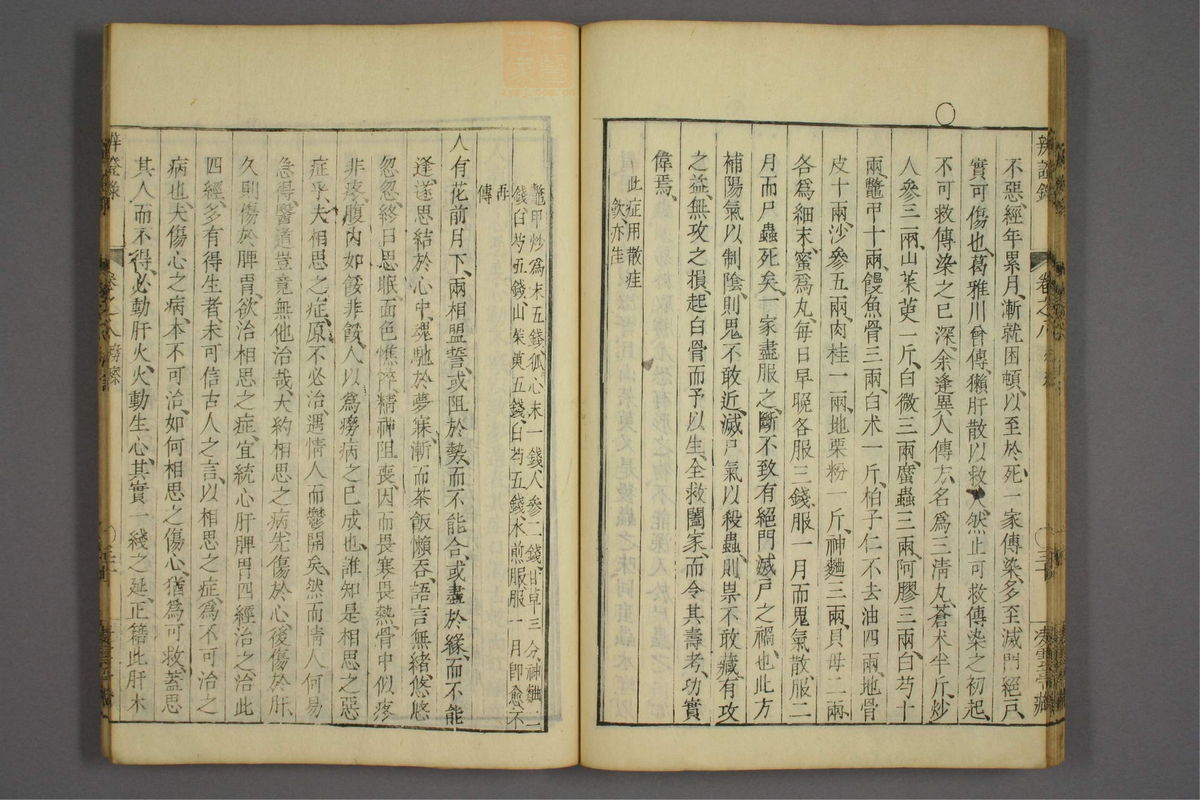 不惡、經年累月、漸就困頓、以至於死、一家傳染、多至滅門絕戶、
實可傷也、葛雅川曾傳、獺肝散以救人、然止可救傳染之初起、
不可救傳染之已深、余逢異人傳方、名爲三清丸、蒼术半斤、炒
人參三兩、山茱萸一斤、白薇三兩、䗪蟲三兩、阿膠三兩、白芍十
兩、鱉甲十兩、鰻魚骨三兩、白术一斤、柏子仁不去油四兩、地骨
皮十兩、沙參五兩、肉桂一兩、地栗粉一斤、神麯三兩、貝母二兩、
各爲細末、蜜爲丸、每日早晚各服三錢、服一月而鬼氣散、服二
月而尸蟲死矣、一家盡服之、斷不致有絕門滅戶之禍也、此方
補陽氣以制陰、則鬼不敢近、滅尸氣以殺蟲、則祟不敢藏、有攻
之益、無攻之損、起白骨而予以生、全救闔家、而令其壽考、功實
偉焉、
此症用散疰
飲亦佳
鱉甲炒爲末五錢、狐心末一錢、人參二錢、甘草三分、神麯二
錢、白芍五錢、山茱萸五錢、白芍五錢、水煎服、服一月卽愈、不
再
傳
人有花前月下、兩相盟誓、或阻於勢而不能合、或盡於緣而不能
逢、遂思結於心中、魂馳於夢寐、漸而茶飯懶吞、語言無緒、悠悠
忽忽、終日思眠、面色憔悴、精神阻喪、因而畏寒畏熱、骨中似疼
非疼、腹內如餒非餒、人以爲癆病之已成也、誰知是相思之惡
症乎、夫相思之症、原不必治、遇情人而鬱開矣、然而情人何易
急得、醫道豈竟無他治哉、大約相思之病、先傷於心、後傷於肝、
久則傷於脾胃、欲治相思之症、宜統心肝脾胃四經治之、治此
四經、多有得生者、未可信古人之言、以相思之症爲不可治之
病也、夫傷心之病、本不可治、如何相思之傷心、猶爲可救、蓋思
其人而不得、必動肝火、火動生心、其實一綫之延、正藉此肝木
辨證錄
卷之八